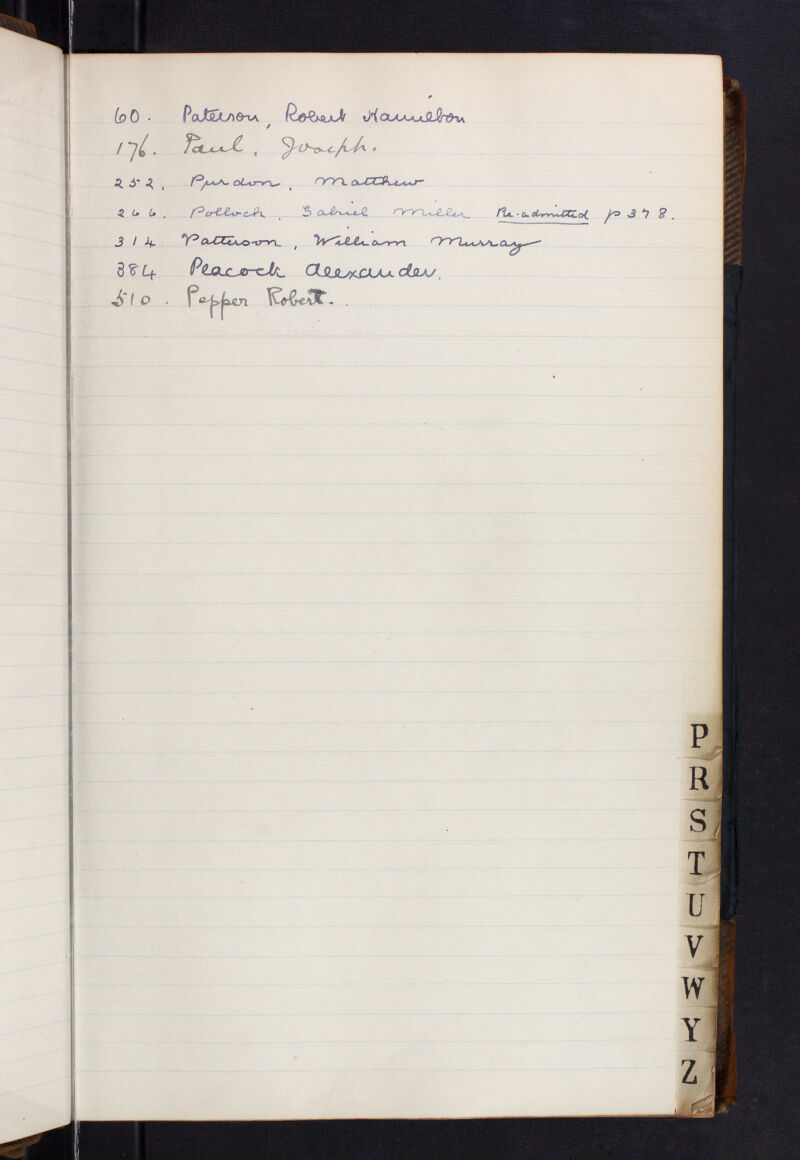 60. Paterson, Robert Hamilton
176. Paul, Joseph.
252. Purdon, Matthew
266. Pollock, Gabriel Miller Re-admitted p378.
314 Patterson, William Murray
384 Peacock Alexander.
510. Pepper Robert.
P
R
S
T
U
V
W
Y
Z